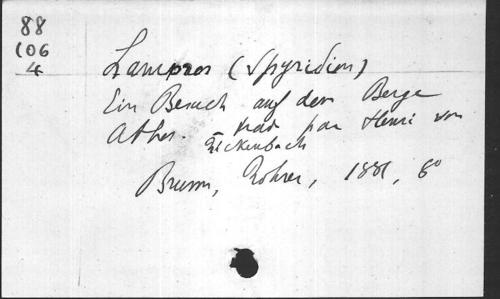 88
106
4
Lampros (Spyridion)
Ein Besuch auf dem Berge
Athos. - trad par Henri von
Rickenbach
Brunn, Rohrer, 1881, 8°